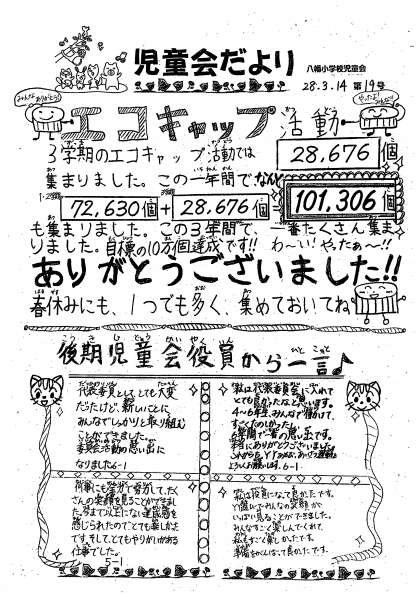 児童会だより
八幡小学校児童会
28.3.14 第19号
みんなありがとう!
やったよ!
エコキャップ活動
3学期のエコキャップ活動では 28,676個
集まりました。この一年間で、なんと
72,630個 + 28,676個 = 101,306個
も集まりました。この3年間で、一番たくさん集ま
りました。目標の10万個達成です!! わ〜い!やったぁ〜!!
ありがとうございました!!
春休みにも、1つでも多く、集めておいてね
後期児童会役員から一言♪
代表委員として、とても大変
だったけど、新しいことに
みんなでしっかりと取り組む
ことができました。
委員会活動の思い出に
なりました 6-1
私は代表委員会に入れて
とても良かったなと思います。
4〜6年生、みんなで
すごくたのしかった
6年間で一番の思い出です。
本当にありがとうございました。
6-1
何事にも全力で
さんの笑顔を見ることができまし
た。今まで以上にない達成感を
感じられたのでとても楽しかった
です。そして、とてもやりがいがある
仕事でした。
5-1
私は役員になって良かったです。
いっぱい見ることができました。
みんなすごく楽しんでくれて、
私もすごく楽しかったです。
準備をがんばって良かったです。